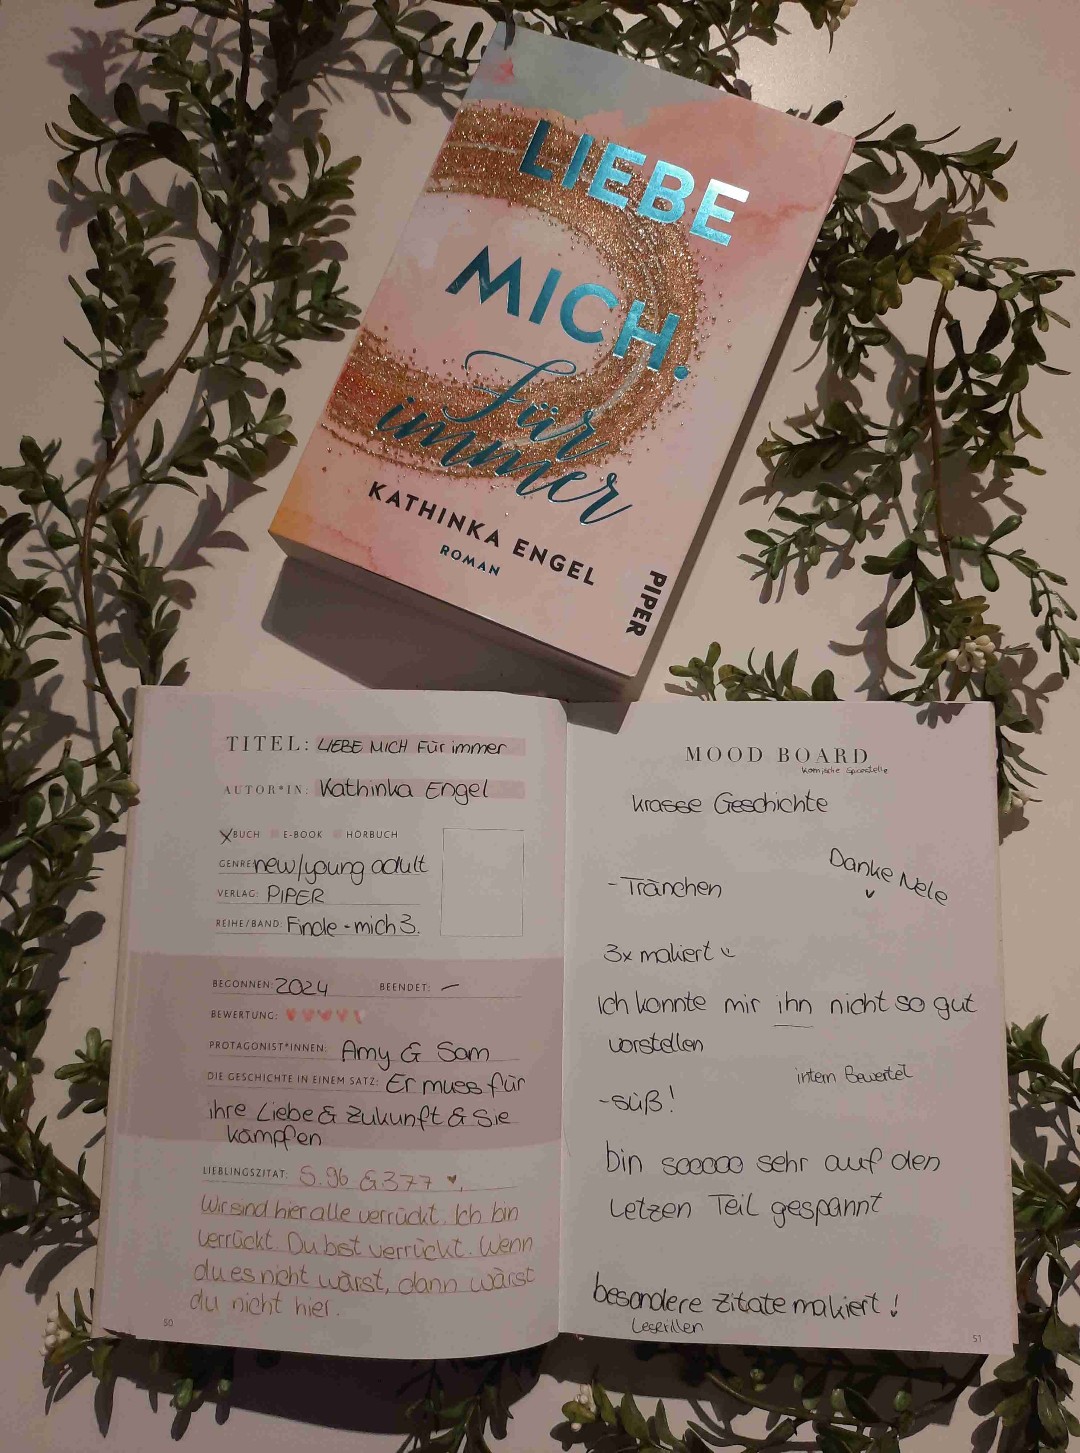 LIEBE
MICH.
Für
immer
KATHINKA ENGEL
ROMAN
PIPER
TITEL: LIEBE MICH Für immer
AUTOR*IN: Kathinka Engel
XBUCH E-BOOK HÖRBUCH
GENRE: new/young adult
VERLAG: PIPER
REIHE/BAND: Finde-mich 3.
BEGONNEN: 2024 BEENDET: –
BEWERTUNG:
PROTAGONIST*INNEN: Amy & Sam
DIE GESCHICHTE IN EINEM SATZ: Er muss für
ihre Liebe & Zukunft & Sie
kämpfen
LIEBLINGSZITAT: S. 96 & 377 ♥.
Wir sind hier alle verrückt. Ich bin
verrückt. Du bist verrückt. Wenn
du es nicht wärst, dann wärst
du nicht hier.
50
MOOD BOARD
komische
krasse Geschichte
Danke Nele
-Tränchen
3x makiert
Ich konnte mir ihn nicht so gut
vorstellen
intern Bewertet
-süß!
bin sooooo sehr auf den
Letzen Teil gespannt
besondere Zitate makiert!
Leserillen
51